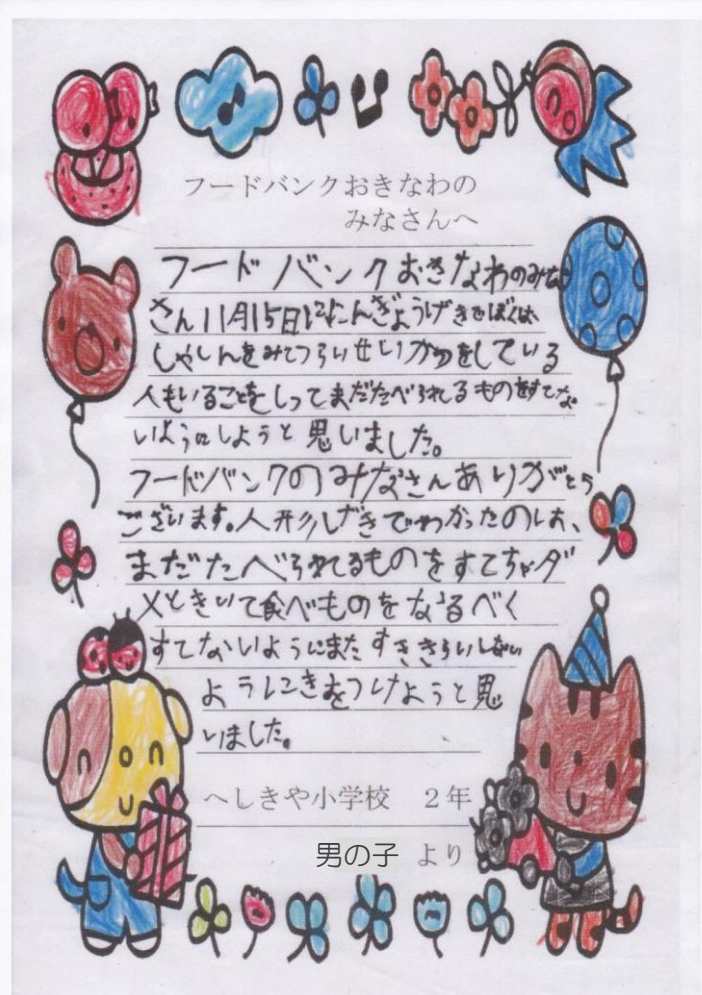 フードバンクおきなわの
みなさんへ
フードバンクおきなわのみな
さん11月15日にんぎょうげきでぼくは
しゃしんをみてつらいせいかつをしている
人もいることをしってまだたべられるものをすてな
いようにしようと思いました。
フードバンクのみなさんありがとう
ございます。人形げきでわかったのは、
まだたべられてるものをすてちゃダ
メときいて食べものをなるべく
すてないようにまたすききらいしない
ようにきをつけようと思
いました。
へしきや小学校 2年
男の子 より